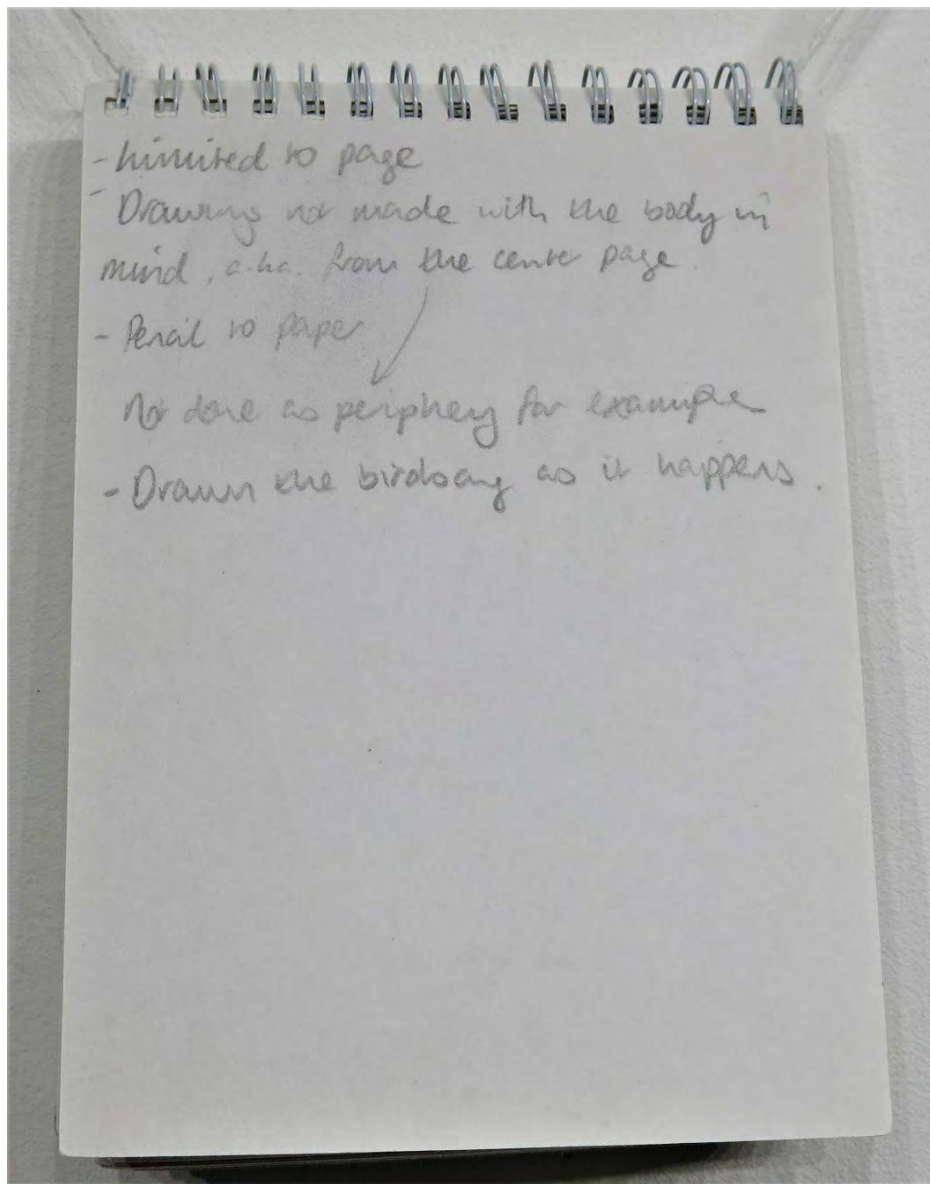 - Limited to page
- Drawings not made with the body in
mind, a.k.a. from the center page.
- Pencil to paper
Not done as periphery for example
- Drawn the birdsong as it happens.